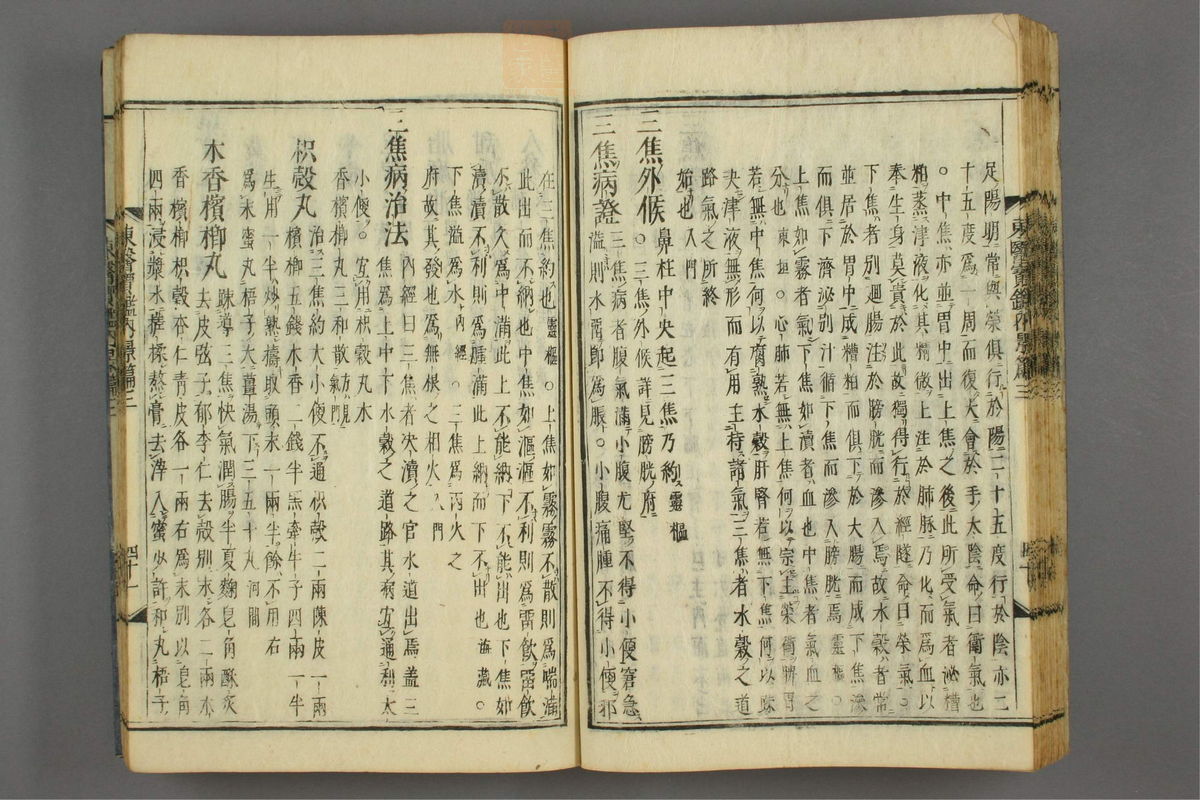 足陽明常與榮俱行於陽二十五度行於陰亦二
十五度爲一周而復大會於手太陰命曰衛氣也
○中焦亦並胃中出上焦之後此所受氣者泌糟
粕蒸津液化其精微上注於肺脉乃化而爲血以
奉生身莫貴於此故獨得行於經隧命曰榮氣○
下焦者別廻腸注於膀胱而滲入焉故水穀者常
並居於胃中成糟粕而俱下於大腸而成下焦滲
而俱下濟泌別汁循下焦而滲入膀胱焉靈樞○
上焦如霧者氣也下焦如瀆者血也中焦者氣血之
分也東垣○心肺若無上焦何以宗主榮衛脾胃
若無中焦何以腐熟水穀肝腎若無下焦何以疎
決津液無形而有用主持諸氣三焦者水穀之道
路氣之所終
始也入門
三焦外候鼻柱中央起三焦乃約靈樞
○三焦外候詳見膀胱府
三焦病證三焦病者腹氣滿小腹尤堅不得小便窘急
溢則水留即爲脹○小腹痛腫不得小便邪
東醫寶鑑內景篇三
四十一
在三焦約也靈樞○上焦如霧霧不散則爲喘滿
此出而不納也中焦如漚漚不利則爲留飲留飲
不散久爲中滿此上不能納下不能出也下焦如
瀆瀆不利則爲腫滿此上納而下不出也海藏○
下焦溢爲水內經○三焦爲丙火之
府故其發也爲無根之相火入門
三焦病治法內經曰三焦者决瀆之官水道出焉盖三
焦爲上中下水穀之道路其病宜通利大
小便○宜用枳殼丸木
香檳榔丸三和散方見氣門
枳殼丸治三焦約大小便不通枳殼二兩陳皮一兩
檳榔五錢木香二錢半黑牽牛子四兩半
生用一半炒熟擣取頭末一兩半餘不用右
爲末蜜丸梧子大薑湯下三五十丸河間
木香檳榔丸踈導三焦快氣潤腸半夏麴皂角酥炙
去皮弦子郁李仁去殼別末各二兩木
香檳榔枳殼杏仁青皮各一兩右爲末別以皂角
四兩浸漿水搓揉熬膏去滓入蜜少許和丸梧子